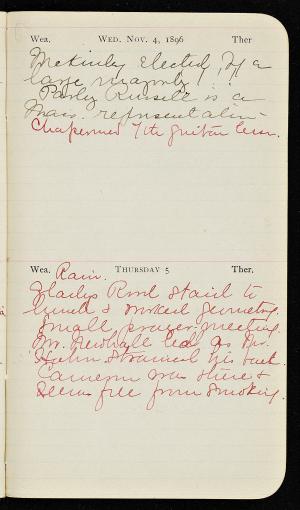 Wea. WED. NOV. 4, 1896 Ther
McKinley elected, by a
large majority!
Parly Russell is a
Mass. representative
Chaperoned 7th guitar
Wea. Rain. THURSDAY 5 Ther.
Gladys Rood staid to
lunch & worked Geometry.
Small prayer-meeting.
Mr. Newhall led as Mr.
strained his back.
Cameron was there &
seems free from smoking.